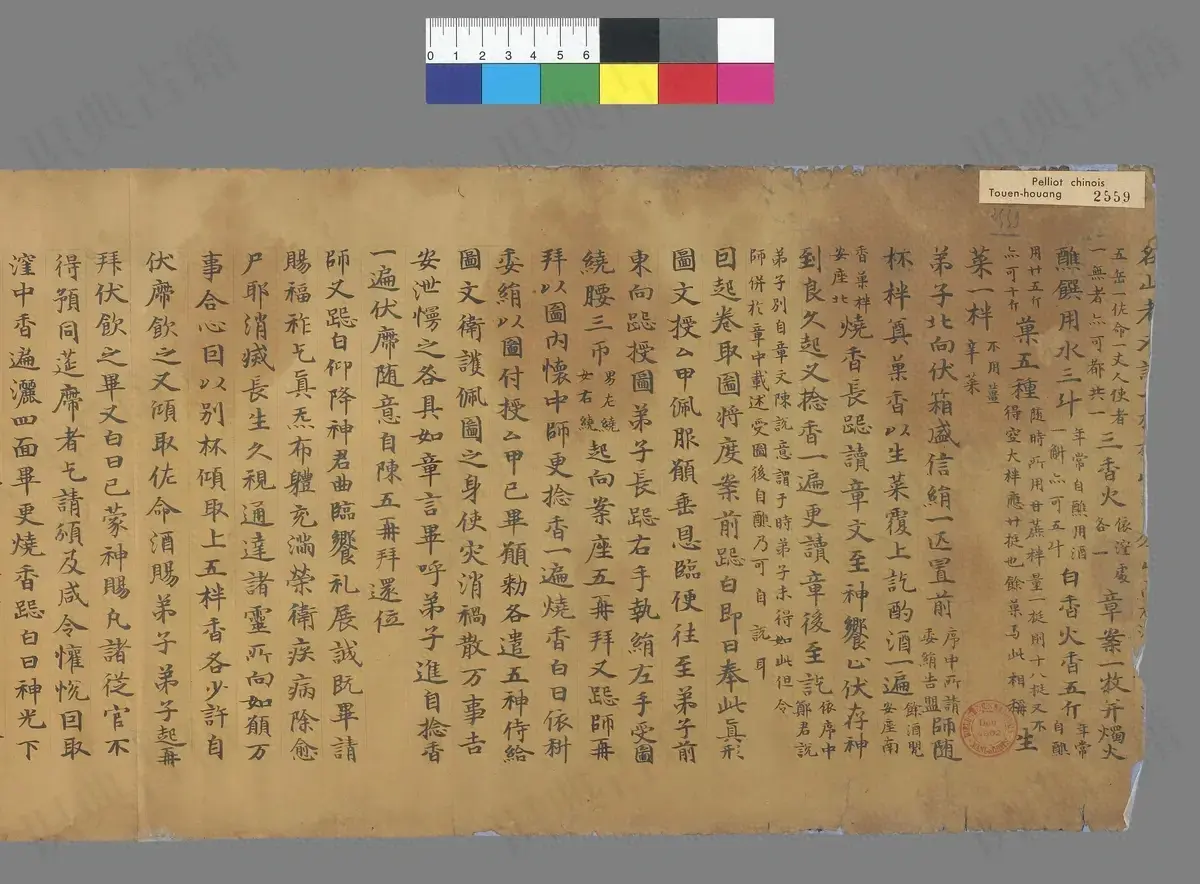 0 1 2 3 4 5 6
Pelliot chinois
Touen-houang 2559
名山
五岳一佐命一丈人使者一無者亦可都共一三香火依窪處各一章案一枚并燭火
醮饌用水三升年常自醮用酒一斛亦可五斗白香火香五斤年常自醮
用廿五斤亦可十斤菓五種随時所用甘蔗柈量一挺剛十八挺又不得空大柈應廿挺也餘菓与此相稱生
菜一柈不用薑辛菜
弟子北向伏箱盛信絹一匹置前序中所請委絹告盟師随
杯柈奠菓香以生菜覆上訖酌酒一遍餘酒安座南
香菓柈安座北燒香長跽讀章文至神饗止伏存神
到良久起又捻香一遍更讀章後至訖依序中鄭君説
弟子別自章文陳説意謂于時弟子未得如此但令
師併於章中載述受圖後自醮乃可自説耳
回起卷取圖將度案前跽白即日奉此真形
圖文授厶甲佩服願垂恩臨便往至弟子前
東向跽授圖弟子長跽右手執絹左手受圖
繞腰三帀男左繞女右繞起向案座五再拜又跽師再
拜以圖內懷中師更捻香一遍燒香白曰依科
委絹以圖付授厶甲已畢願勑各遣五神侍給
圖文衛護佩圖之身使灾消禍散万事吉
安泄慢之咎具如章言畢呼弟子進自捻香
一遍伏席随意自陳五再拜還位
師又跽白仰降神君曲臨饗礼展誠既畢請
賜福祚乞真炁布體充滿榮衛疾病除愈
尸耶消滅長生久視通達諸靈所向如願万
事合心回以別杯傾取上五柈香各少許自
伏席飲之又傾取佐命酒賜弟子弟子起再
拜伏飲之畢又白曰已蒙神賜凡諸從官不
得預同莚席者乞請頒及咸令懽悅回取
窪中香遍灑四面畢更燒香跽白曰神光下